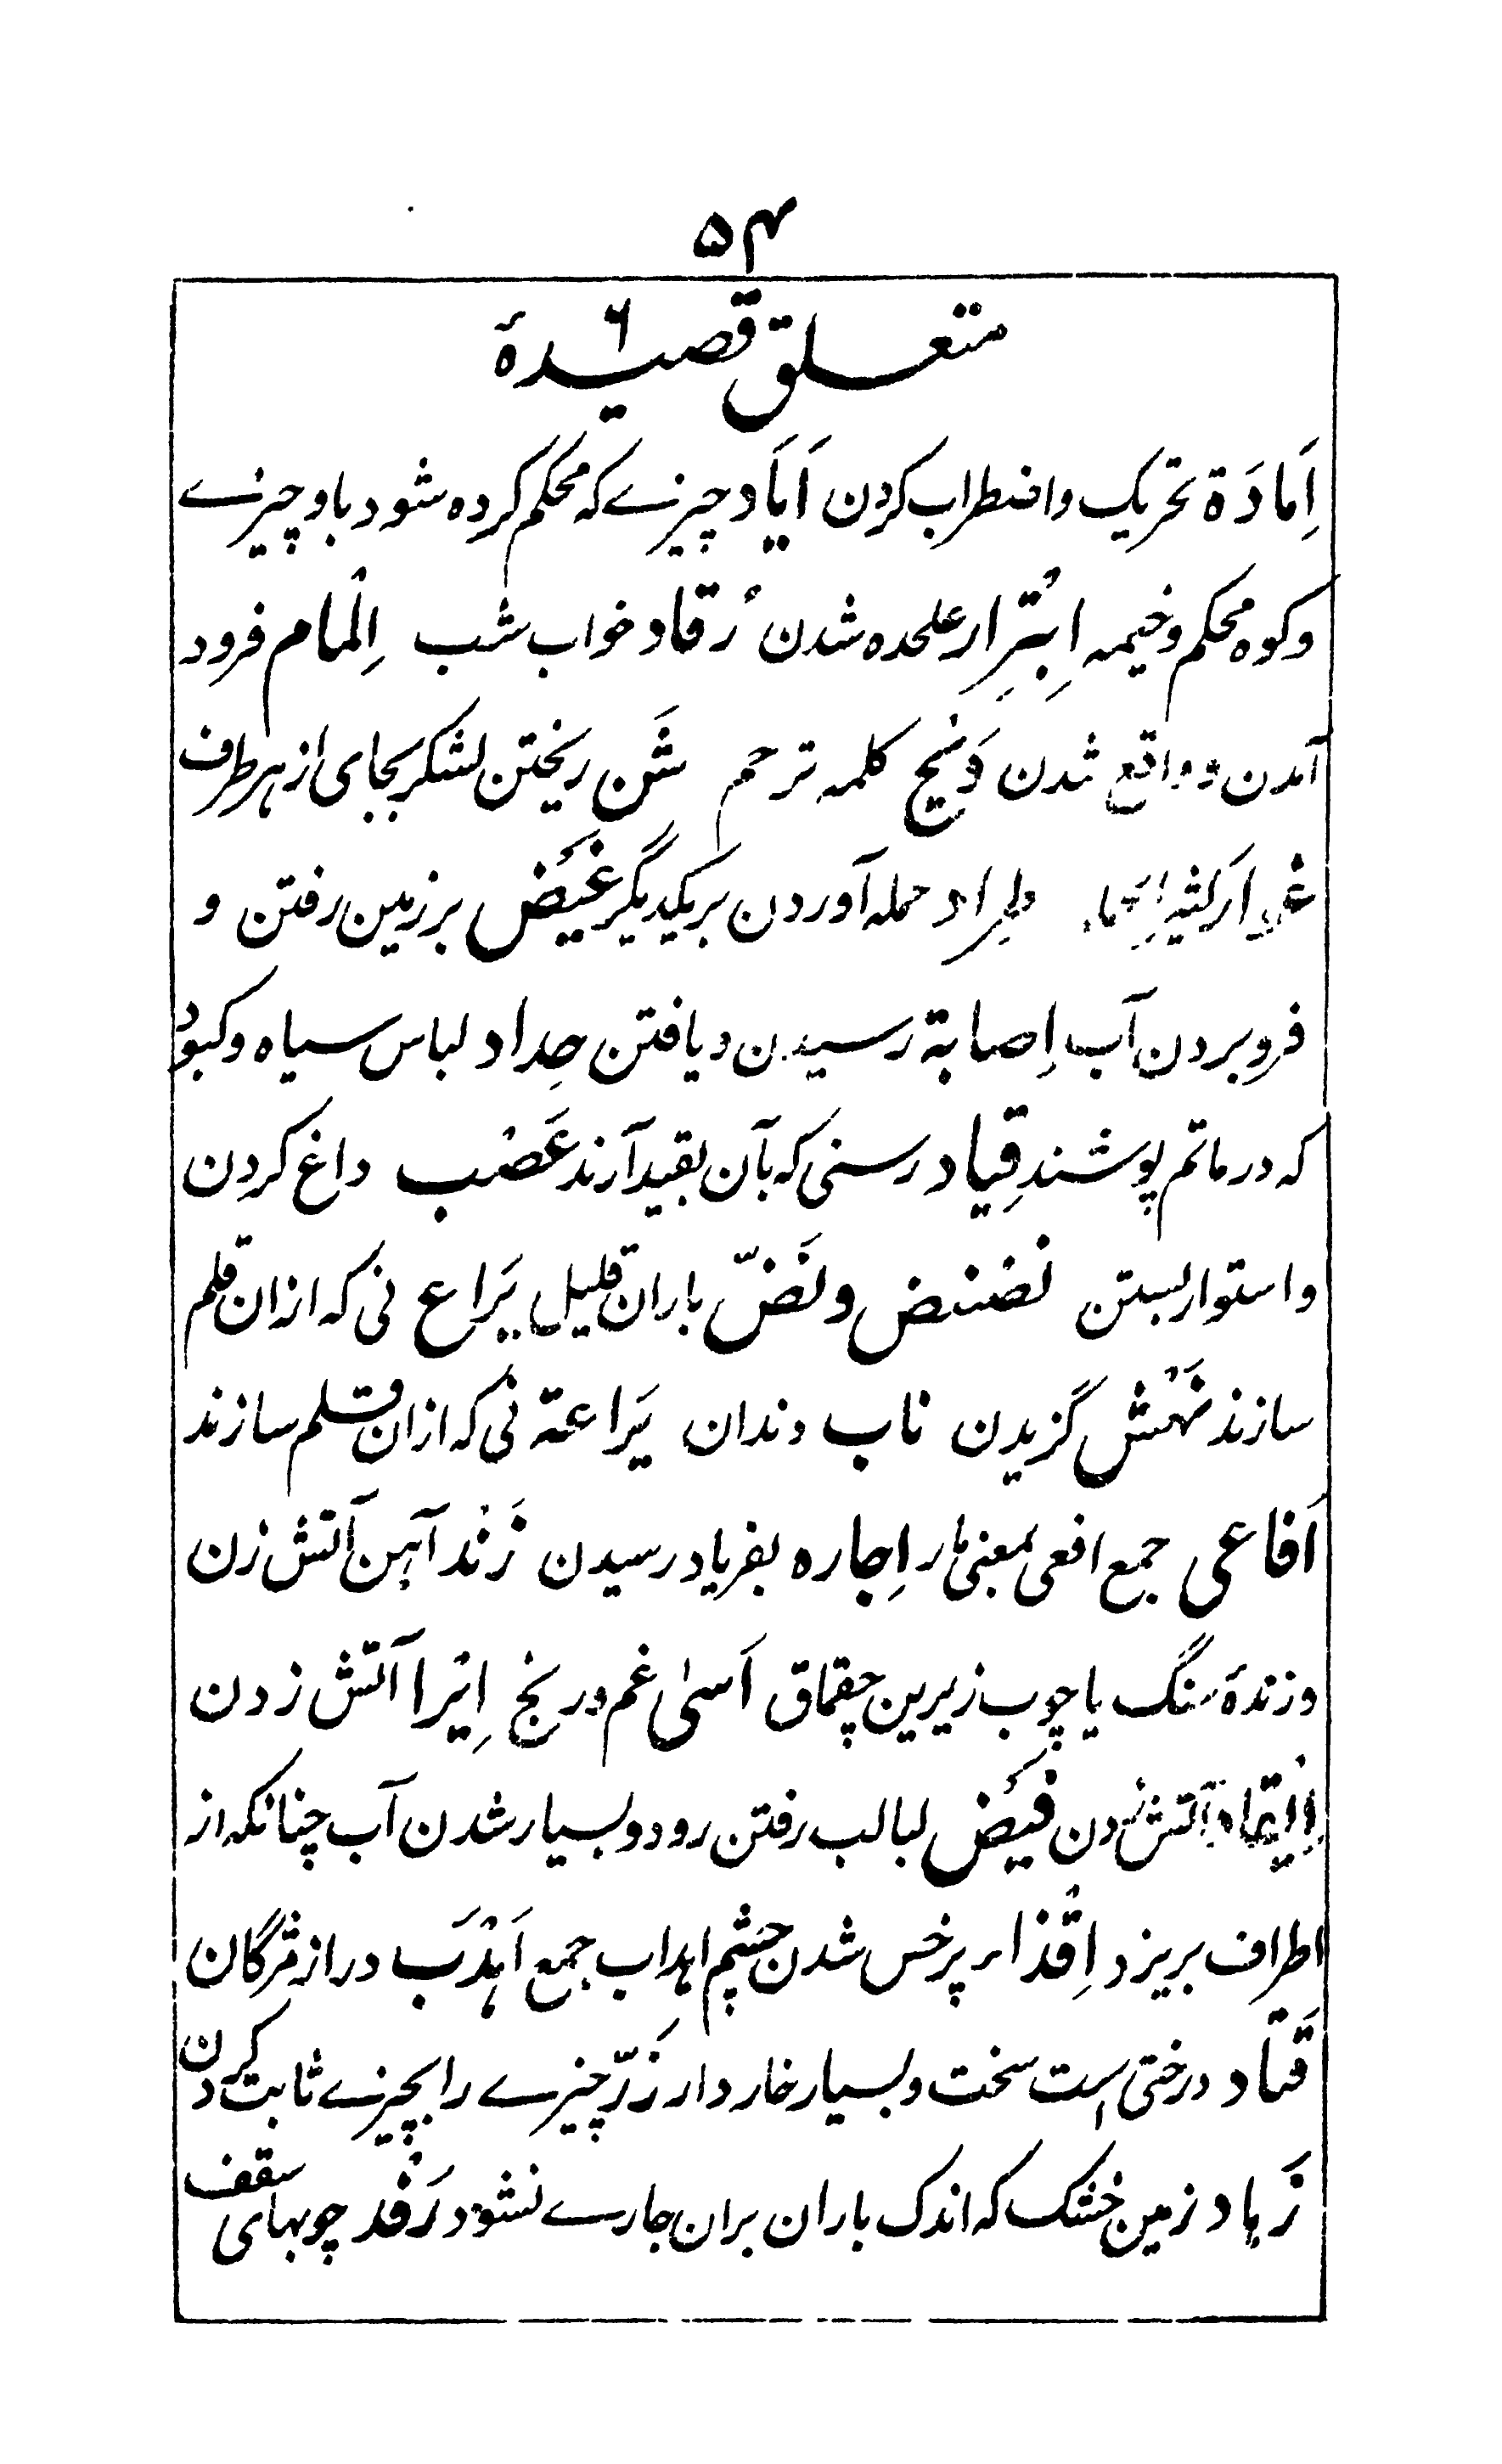 ۵۴
متعلق قصیدۀ ۶
اِمادَة تحریک واضطراب کردن اَیاد چیزے که محکم کرده شود باو چیزے
وکوه محکم وخیمه اِبْتِزار علحده شدن رُقاد خواب شب اِلْمام فرود
آمدن وواقع شدن وَیْح کلمه ترحم شَن ریختن لشکر بجای از هر طرف
طِراد حمله آوردن بریکدیگر غَیْض برزمین رفتن و
فروبردن آب اِصابة رسیدن ویافتن حِداد لباس سیاه وکبود
که درماتم پوشند قِیاد رسنی که بآن بقید آرند عَصْب داغ کردن
واستوار بستن نضنض ونَضّ باران قلیل یَراع نی که ازان قلم
سازند نَهْش گزیدن ناب دندان یَراعة نی که ازان قلم سازند
اَفاعی جمع افعی بمعنی مار اِجاره بفریاد رسیدن زَنْد آهن آتش زن
وزندۀ سنگ یا چوب زیرین چقماق اَسیٰ غم ورنج اِیْرا آتش زدن
آتش زدن فَیْض لبالب رفتن رود وبسیار شدن آب چنانکه از
اطراف بریزد اِقْذاء پرخس شدن چشم اهداب جمع اَهْدَب دراز مژگان
قَتاد درختی است سخت وبسیار خار دار زَرّ چیزے را بچیزے ثابت کردن
زَهاد زمین خشک که اندک باران بران جارے نشود رَفْد چوبهای سقف